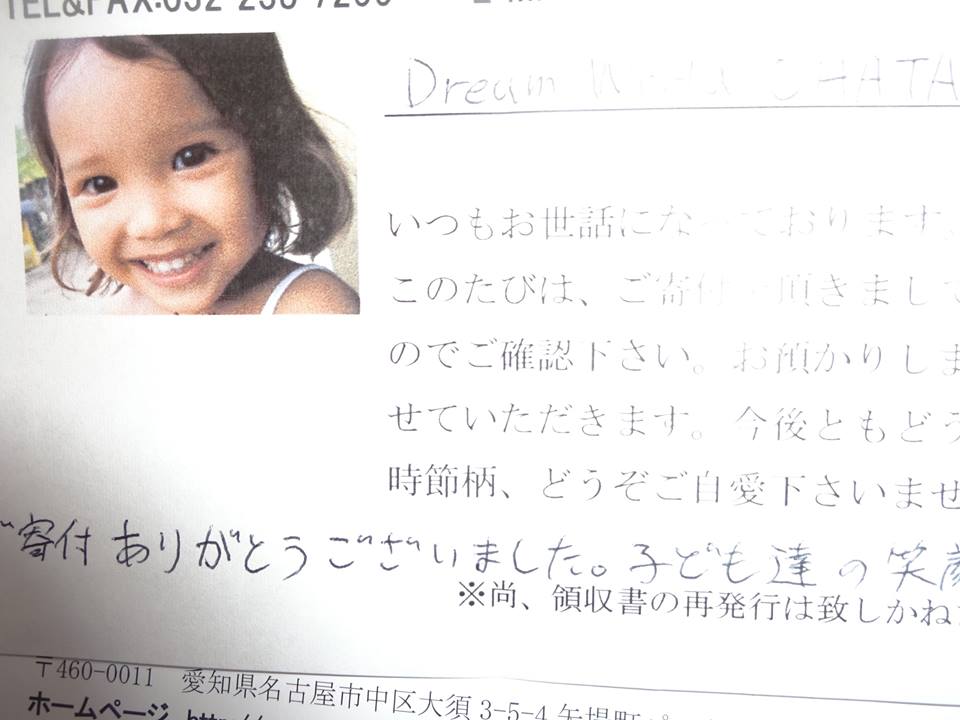 TEL&FAX:052
Dream CHATA
いつもお世話になっております。
このたびは、ご寄付を頂きまして
のでご確認下さい。お預かりしま
せていただきます。今後ともどう
時節柄、どうぞご自愛下さいませ
ご寄付ありがとうございました。子ども達の笑顔
※尚、領収書の再発行は致しかねま
〒460-0011 愛知県名古屋市中区大須3-5-4 矢場町パ
ホームページ http://